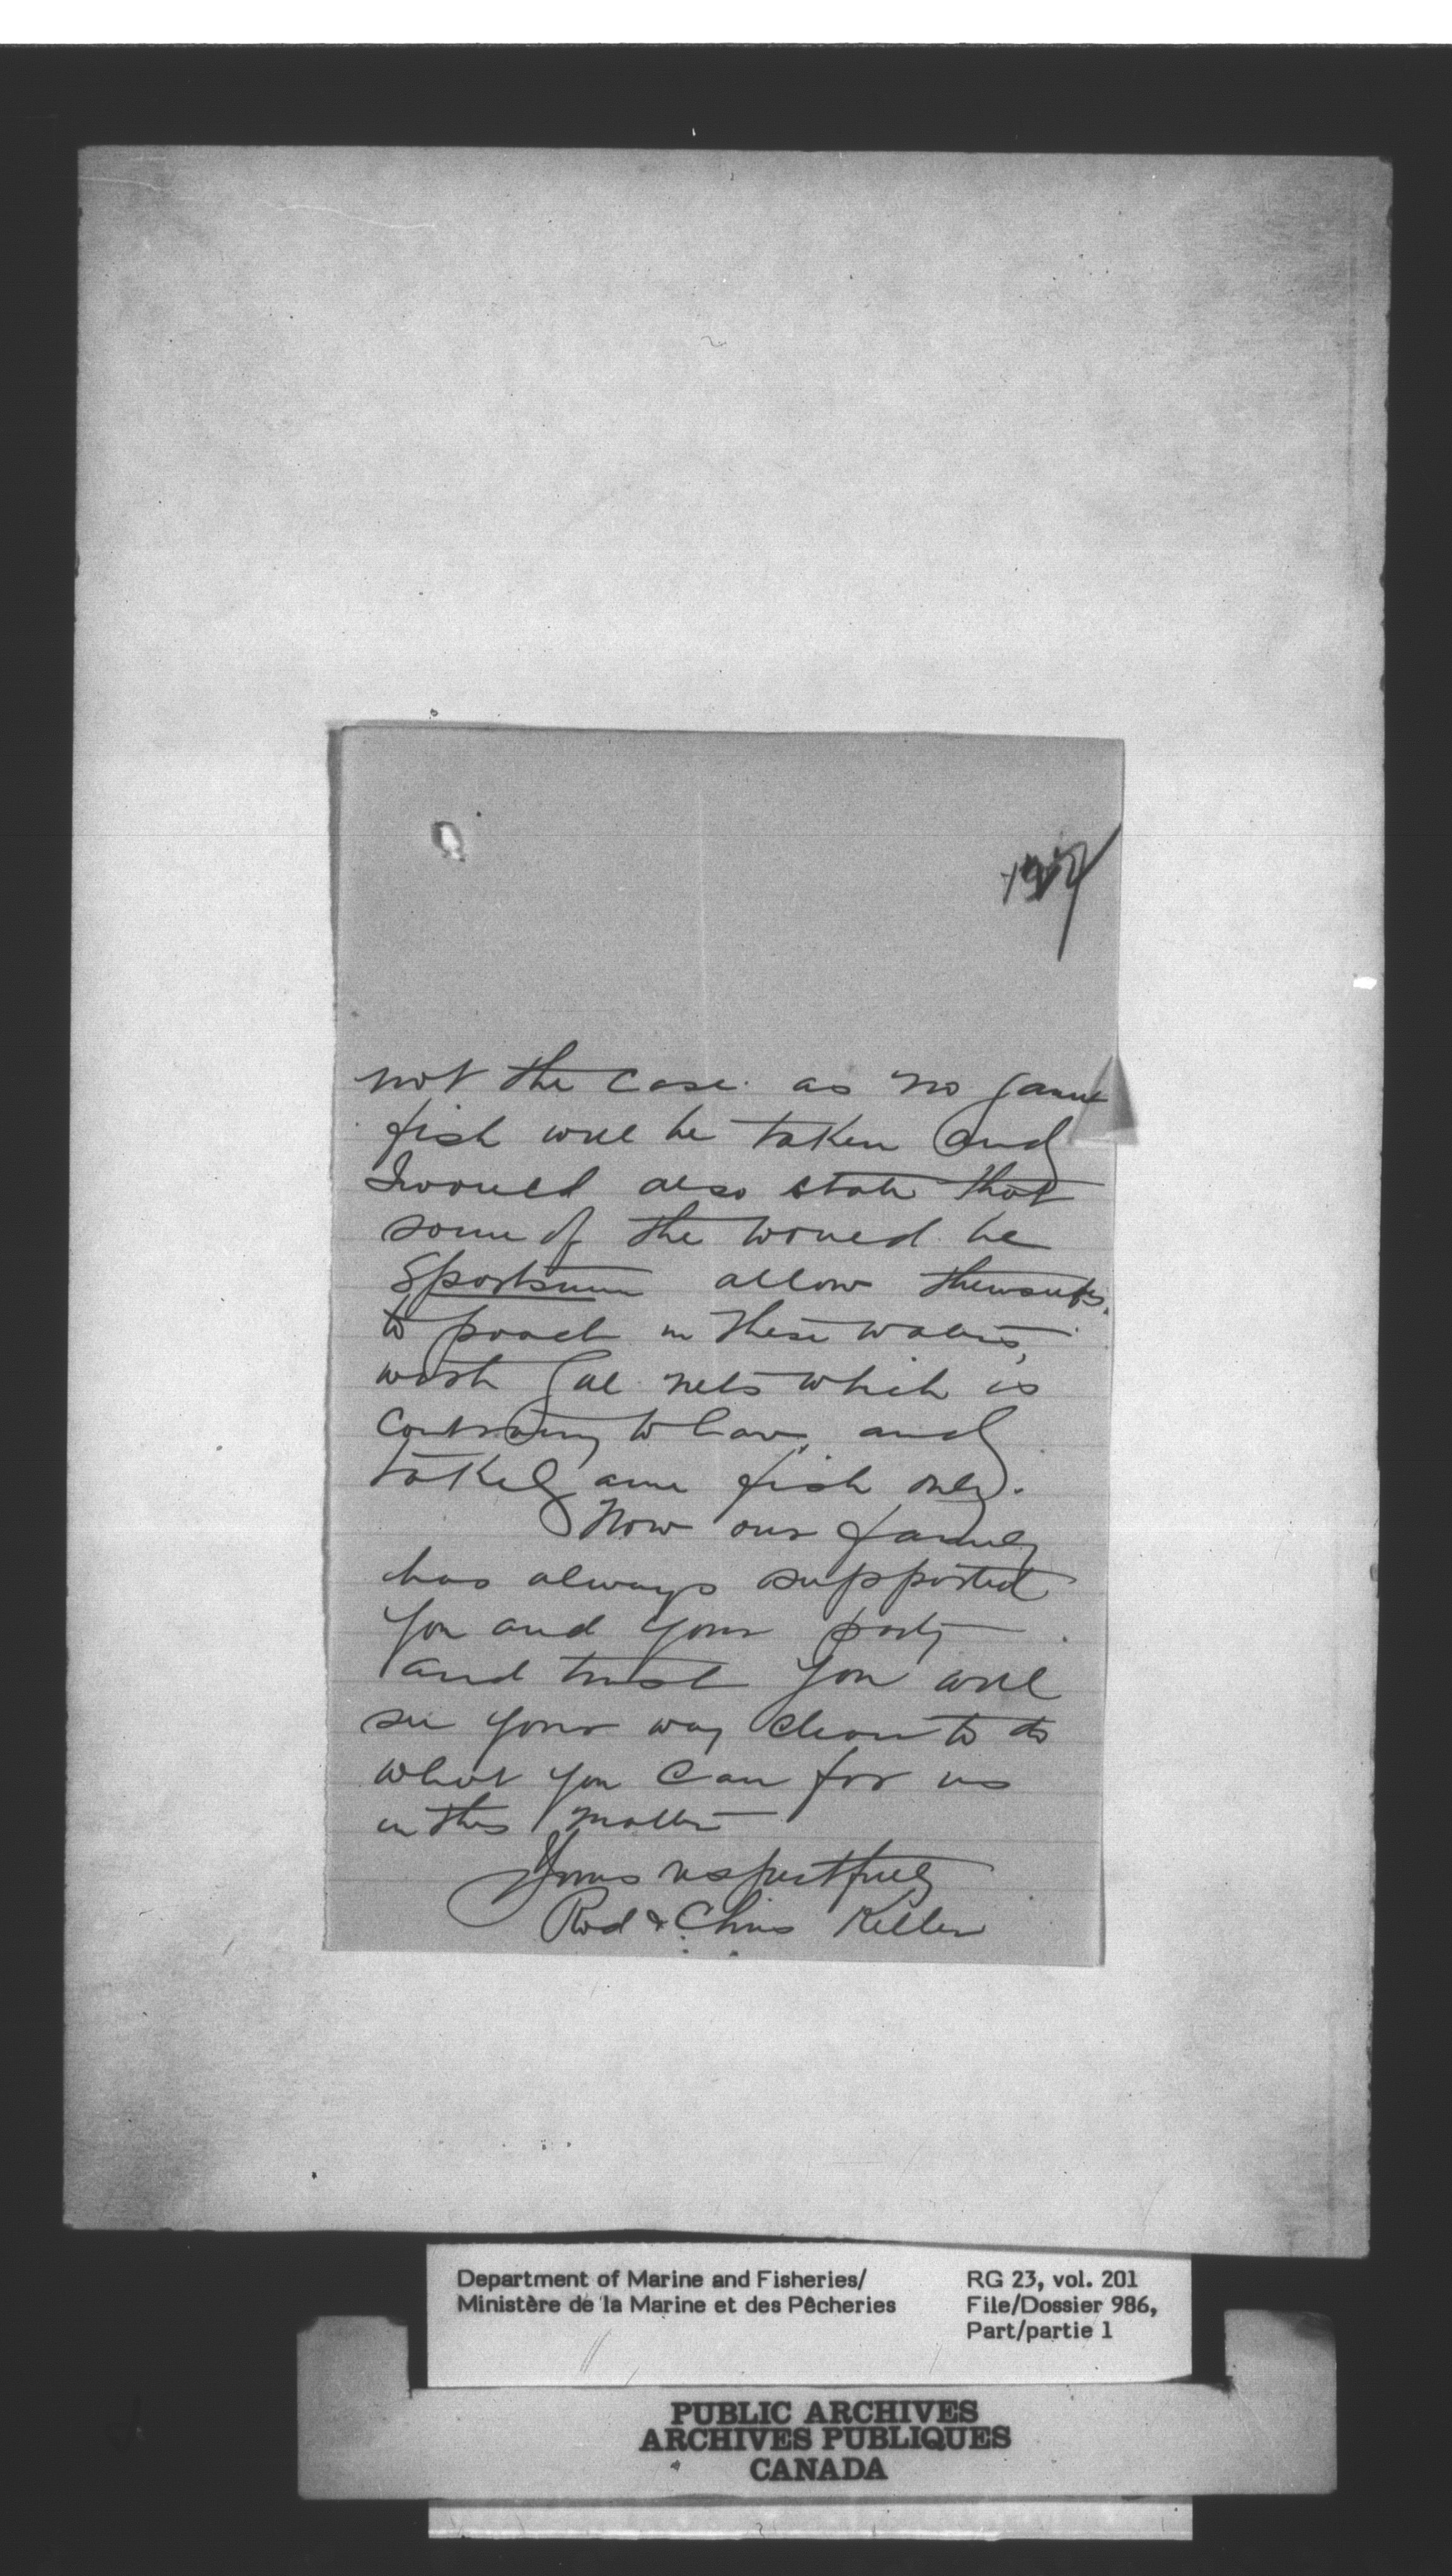 not the case. as no game
fish will be taken and
I would also state that
some of the would be
Sportsmen allow themselves
to poach in these waters,
with Gill nets which is
contrary to law, and
take game fish only.
Now our family
has always supported
you and your party
and trust you will
see your way clear to do
what you can for us
in this matter
Yours respectfully
Rod & Chris Keller
Department of Marine and Fisheries/
Ministère de la Marine et des Pêcheries
RG 23, vol. 201
File/Dossier 986,
Part/partie 1
PUBLIC ARCHIVES
ARCHIVES PUBLIQUES
CANADA